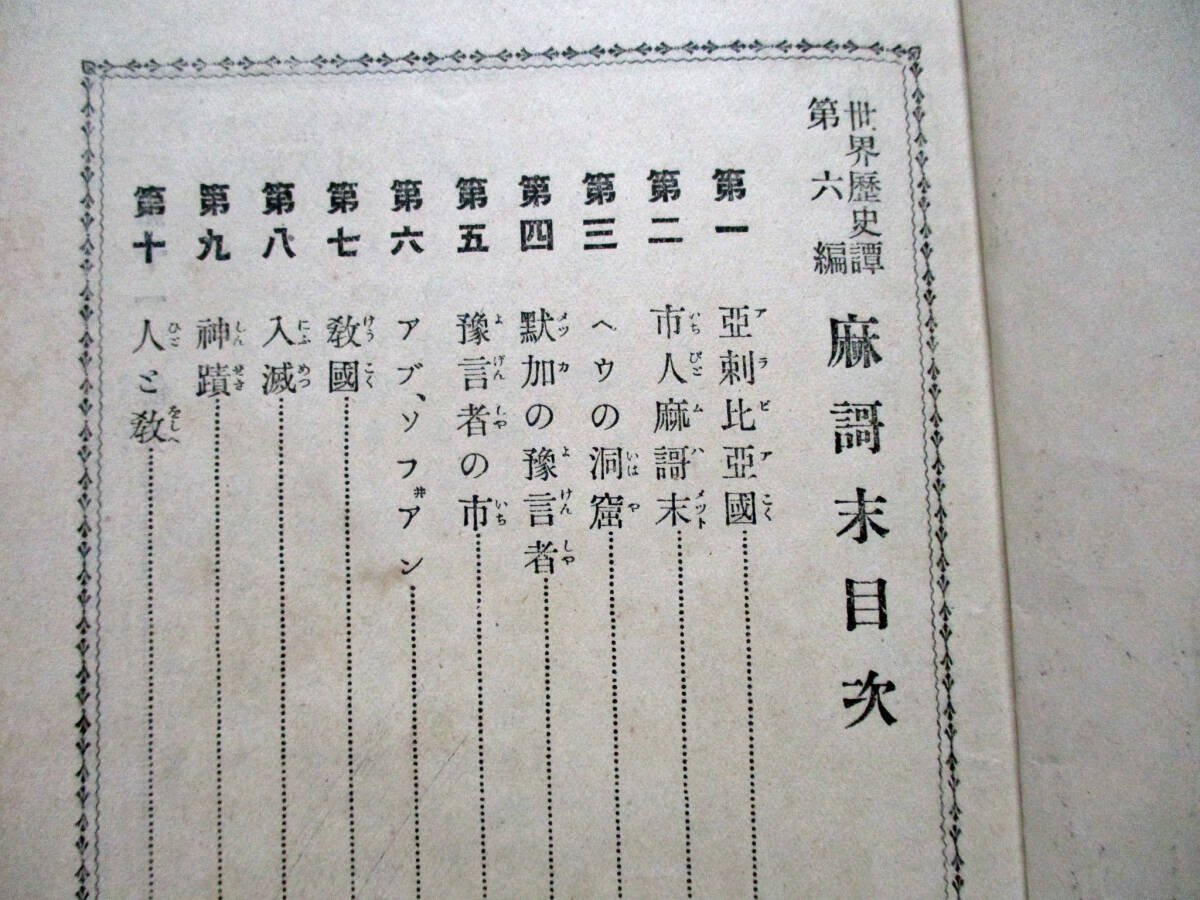 世界歷史譚
第六編
麻謌末目次
第一 亞剌比亞國
第二 市人麻謌末
第三 ヘウの洞窟
第四 默加の豫言者
第五 豫言者の市
第六 アブ、ソフ井アン
第七 敎國
第八 入滅
第九 神蹟
第十 人と敎